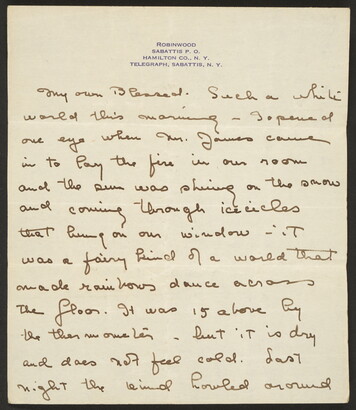 ROBINWOOD
SABATTIS P. O.
HAMILTON CO., N. Y.
TELEGRAPH, SABATTIS, N. Y.
My own Blessed. Such a white
world this morning – I opened
one eye when Mr. James came
in to lay the fire in our room
and the sun was shining on the snow
and coming through iceicles
that hung on our window – it
was a fairy kind of a world that
made rainbows dance across
the floor. It was 15 above by
the thermometer – but it is dry
and does not feel cold. Last
night the wind howled around